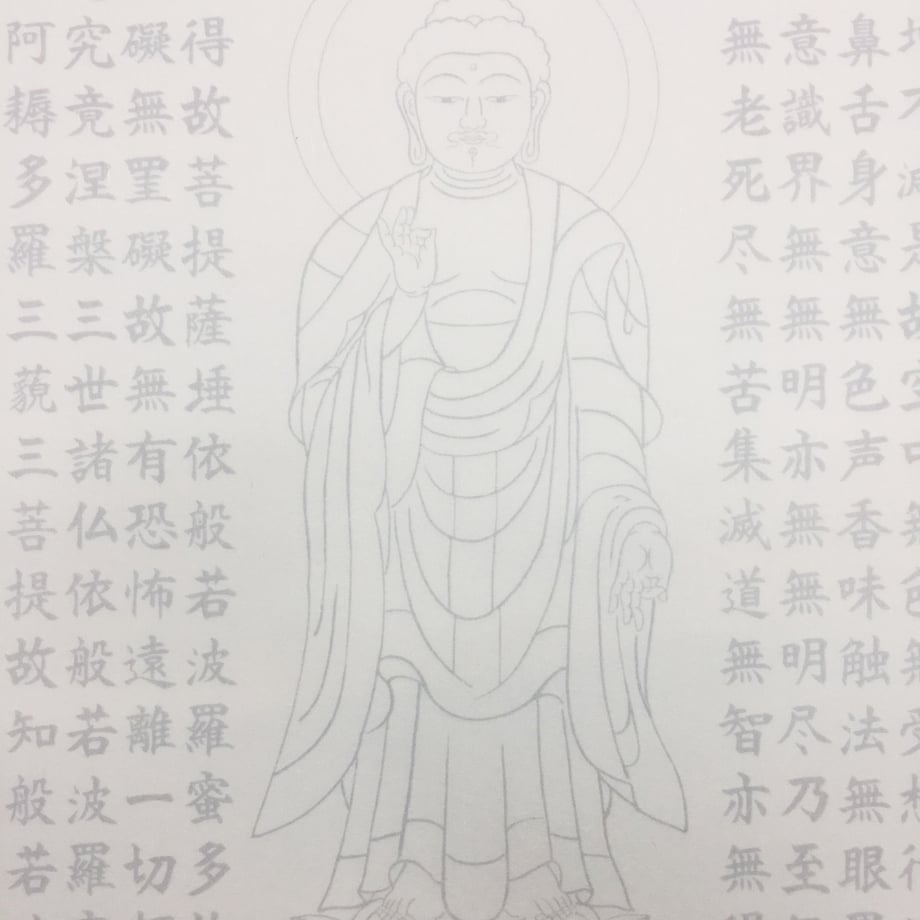 鼻舌身意無色声香味触法無眼
意識界無無明亦無無明尽乃至
無老死尽無苦集滅道無智亦無
得故菩提薩埵依般若波羅蜜多
礙無罣礙故無有恐怖遠離一切
究竟涅槃三世諸仏依般若波羅
阿耨多羅三藐三菩提故知般若